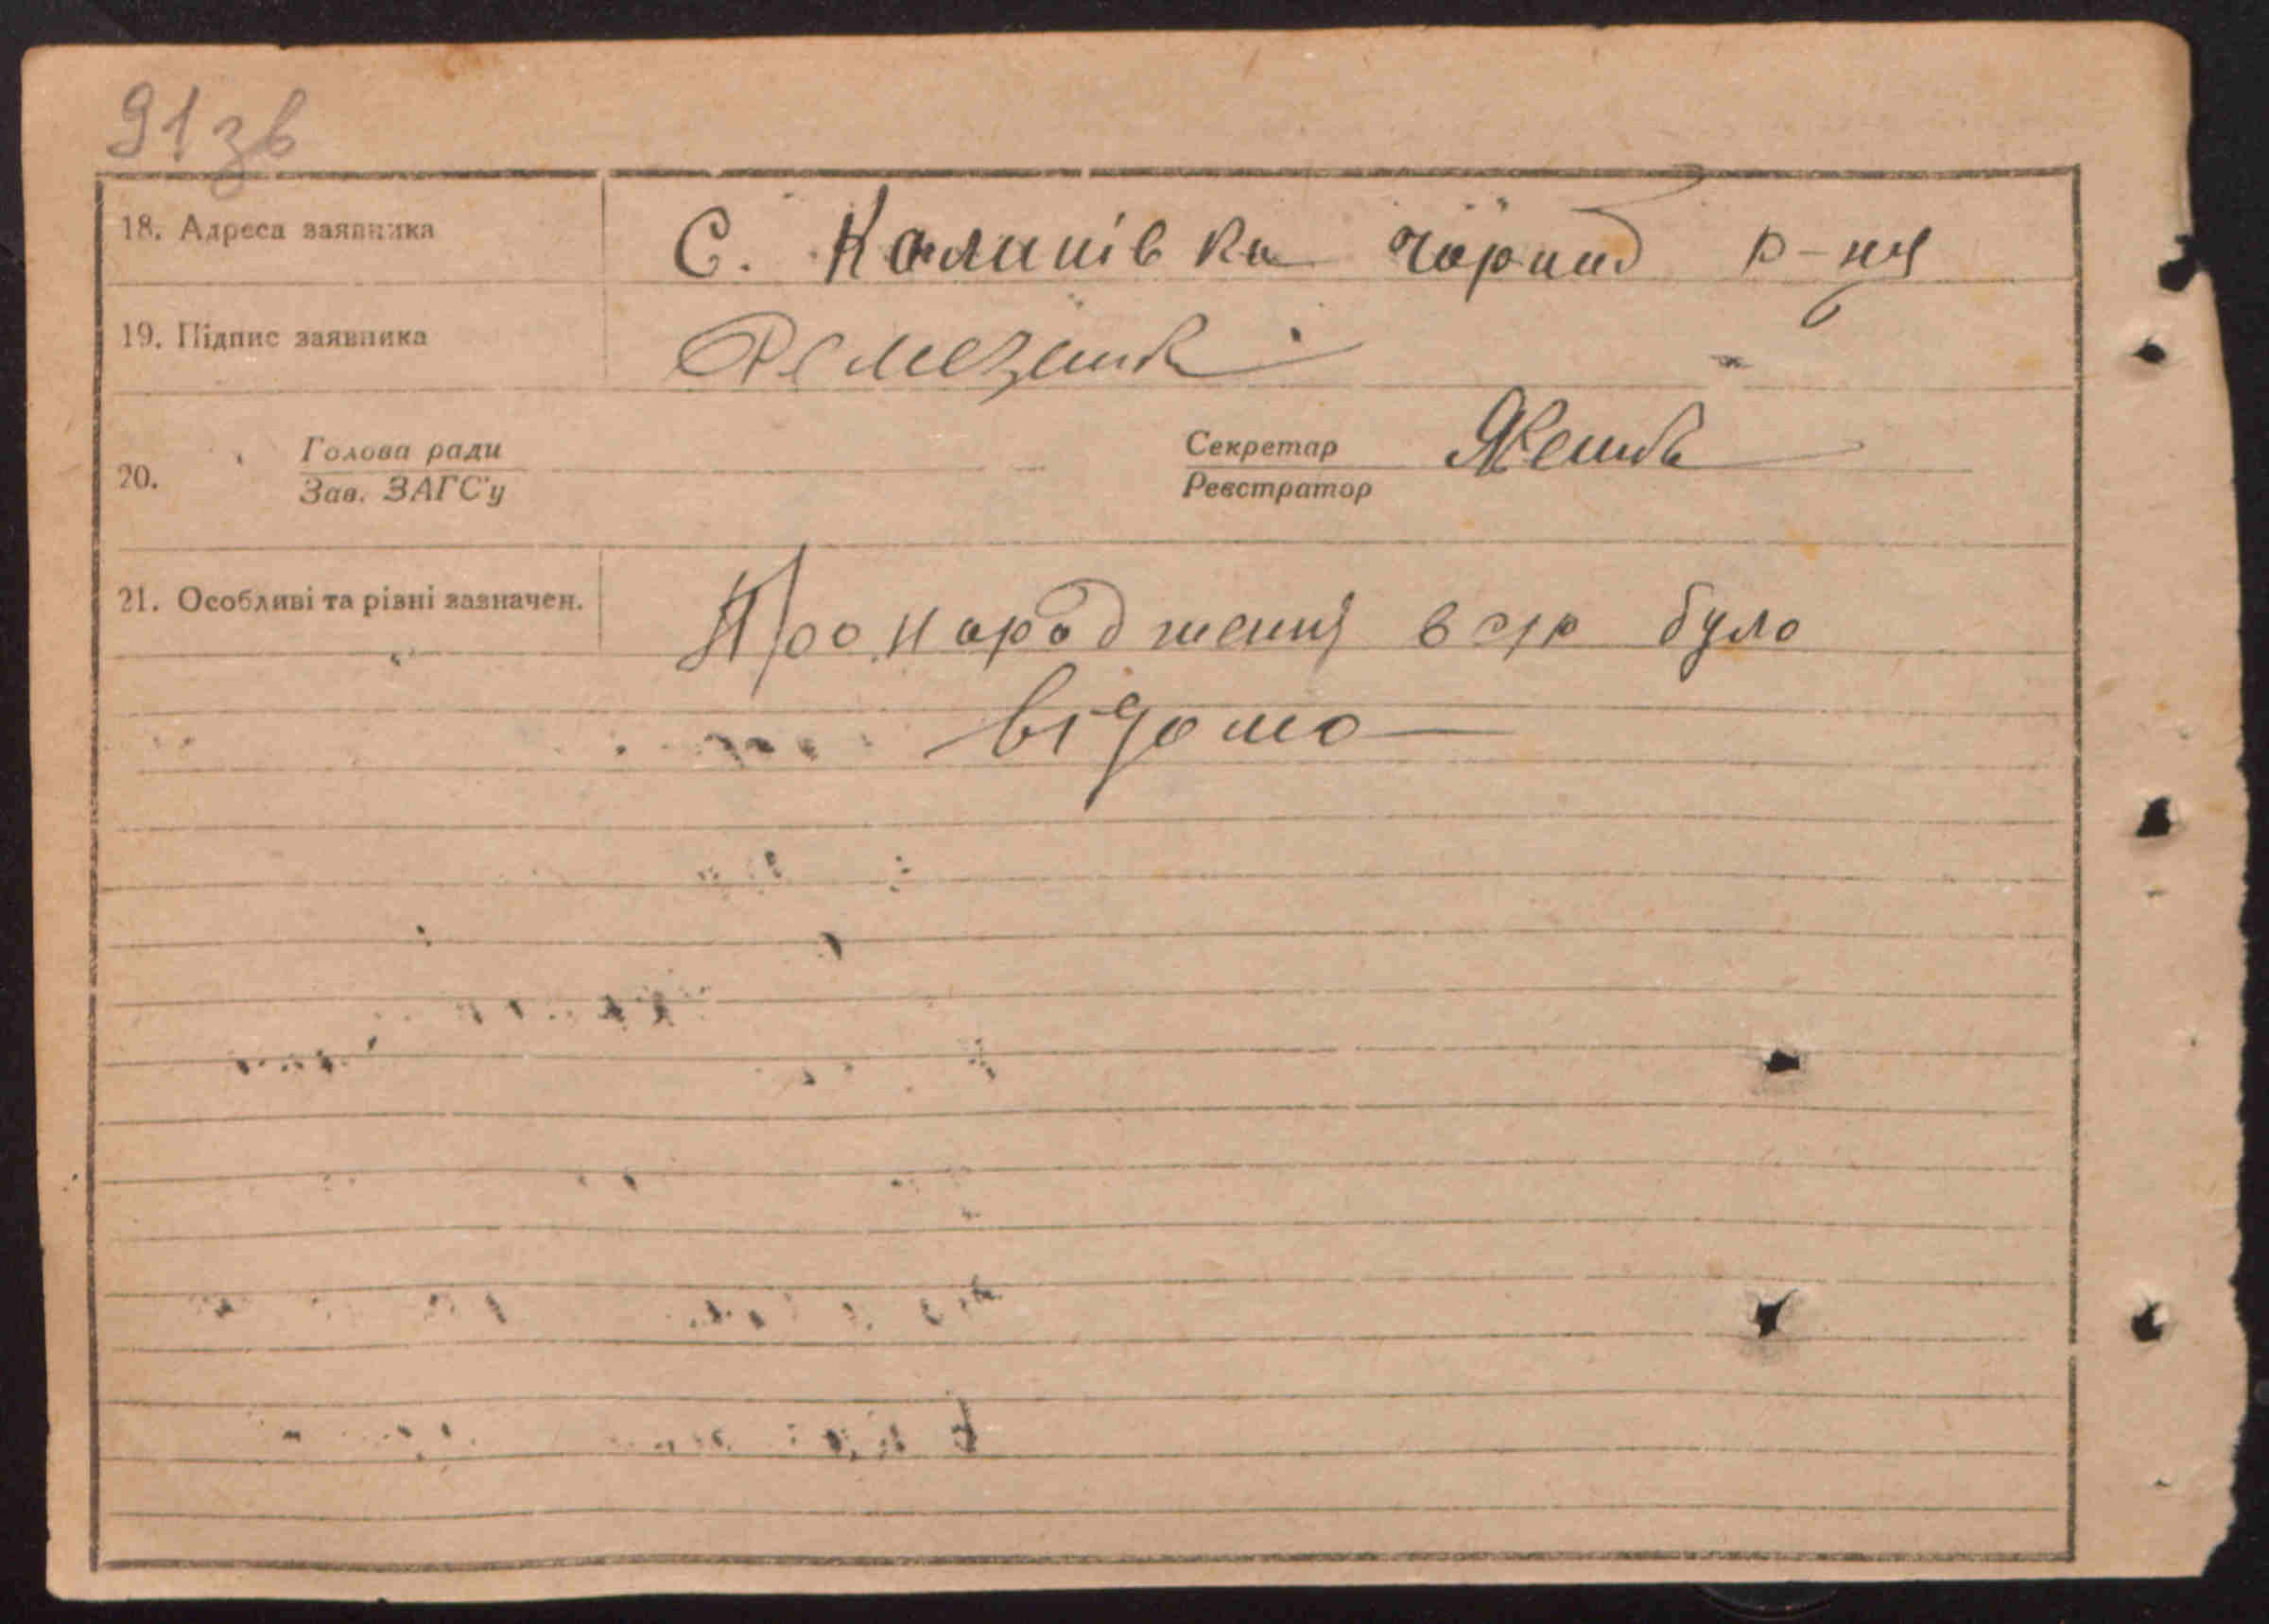 91 зв
18. Адреса заявника С. Калинівка чорноб р-ну
19. Підпис заявника Ремезенк
20. Голова ради Секретар
Зав. ЗАГС'у Реєстратор
21. Особливі та різні зазначен. Про народження було
відомо